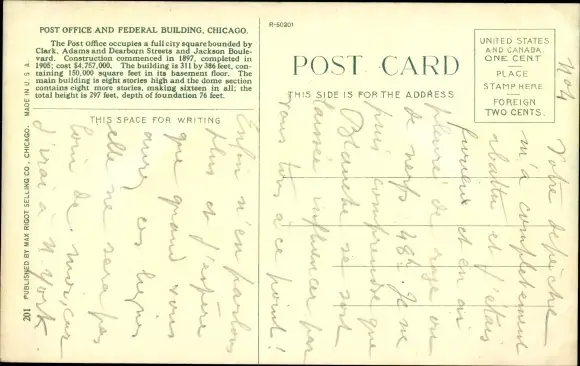 POST OFFICE AND FEDERAL BUILDING, CHICAGO.
The Post Office occupies a full city square bounded by
Clark, Adams and Dearborn Streets and Jackson Boule-
vard. Construction commenced in 1897, completed in
1905; cost $4,757,000. The building is 311 by 386 feet, con-
taining 150,000 square feet in its basement floor. The
main building is eight stories high and the dome section
contains eight more stories, making sixteen in all; the
total height is 297 feet, depth of foundation 76 feet.
THIS SPACE FOR WRITING
201 PUBLISHED BY MAX RIGOT SELLING CO., CHICAGO. MADE IN U.S.A.
R-50201
POST CARD
THIS SIDE IS FOR THE ADDRESS
UNITED STATES
AND CANADA.
ONE CENT
PLACE
STAMP HERE
FOREIGN
TWO CENTS.
No 4
Votre dépêche
m'a complètement
abattu et j'étais
furieux et en ai
pleuré de rage ou
de nerfs 48h. Je ne
puis comprendre que
Blanche se soit
laissée influencer par
vous tous à ce point!
Enfin n'en parlons
plus et j'espère
que quand vous
aurez ces lignes
elle ne sera pas
loin de moi, car
j'irai à N York.